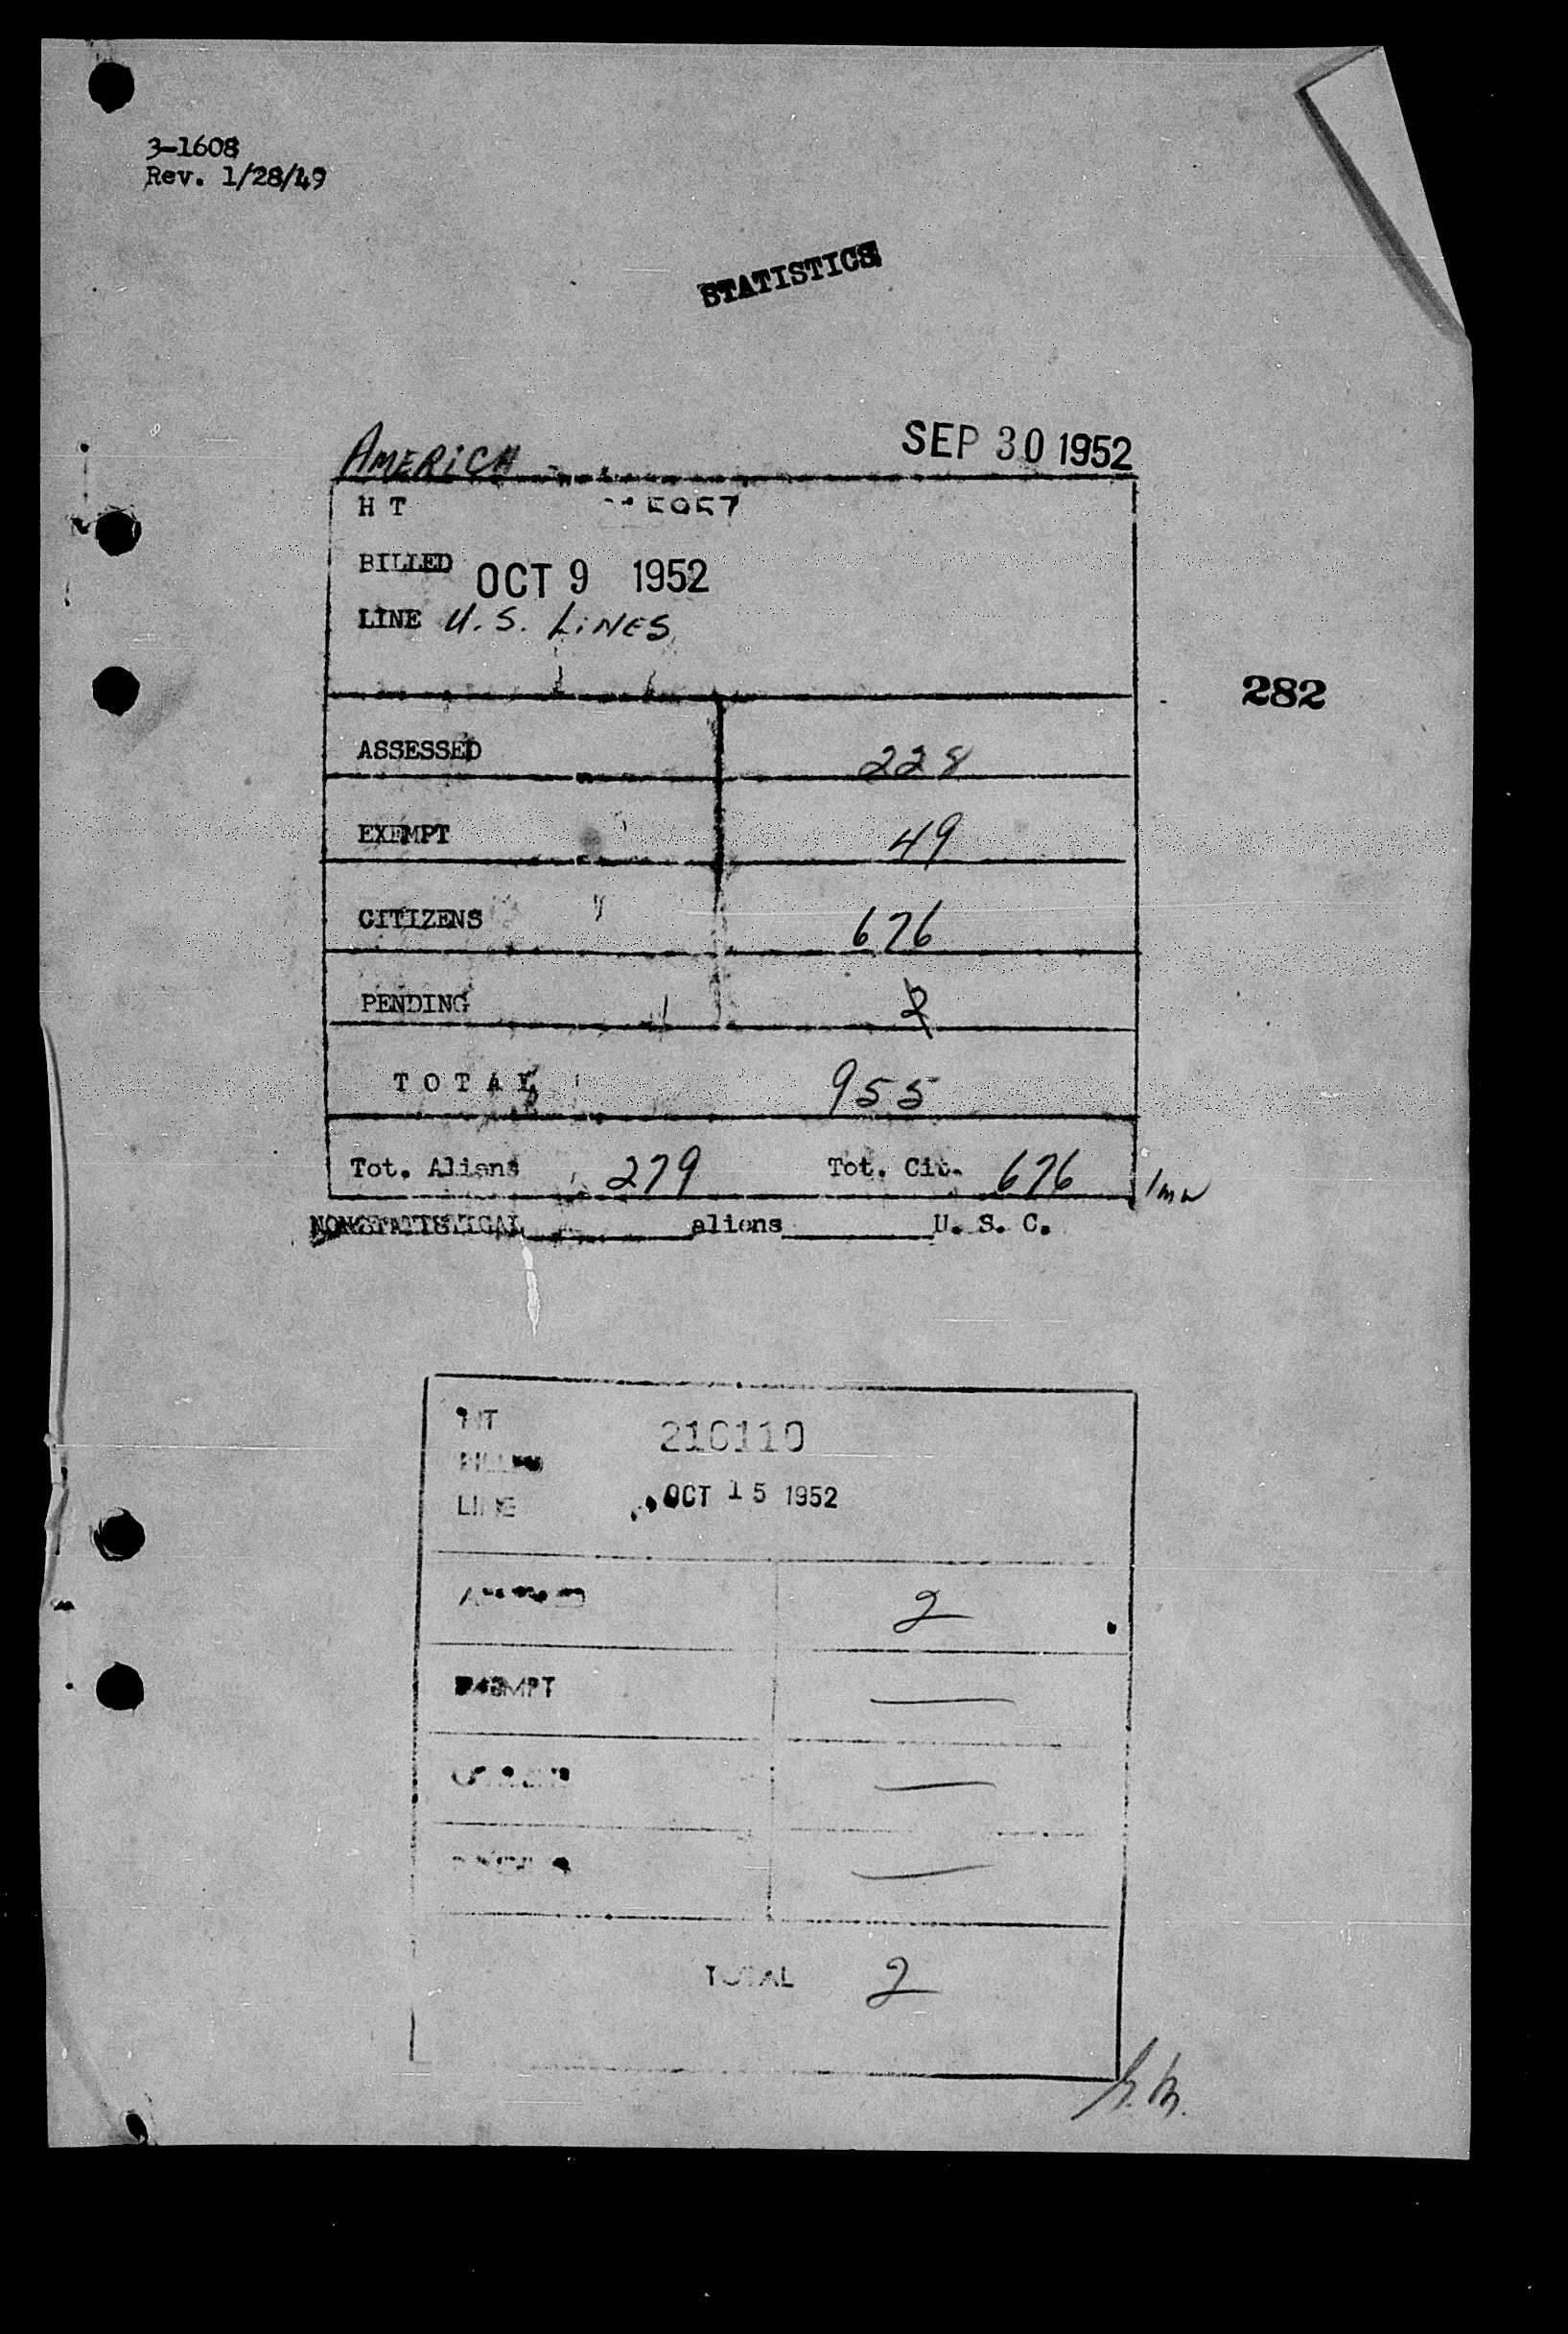 3-1608
Rev. 1/28/49
STATISTICS
AMERICA SEP 30 1952
H T 5957
BILLED OCT 9 1952
LINE U.S. LINES
282
ASSESSED 228
EXEMPT 49
CITIZENS 676
PENDING 2
TOTAL 955
Tot. Aliens 279 Tot. Cit. 676
NONSTATISTICAL aliens U. S. C.
HT 210110
BILLED
OCT 15 1952
LINE
ASSESSED 2
EXEMPT —
CITIZENS —
PENDING —
TOTAL 2